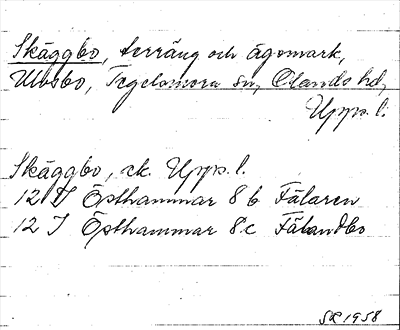 Skäggbo, terräng och ägomark,
Ullbsbo, Tegelsmora sn, Olands hd,
Upps. l.
Skäggbo, ek. Upps. l.
12 I Östhammar 8 b Fälaren
12 I Östhammar 8 c Fälandbo
SR 1958